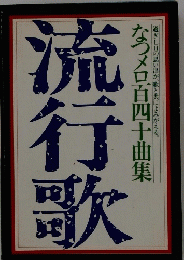 流行歌
なつメロ百四十曲集